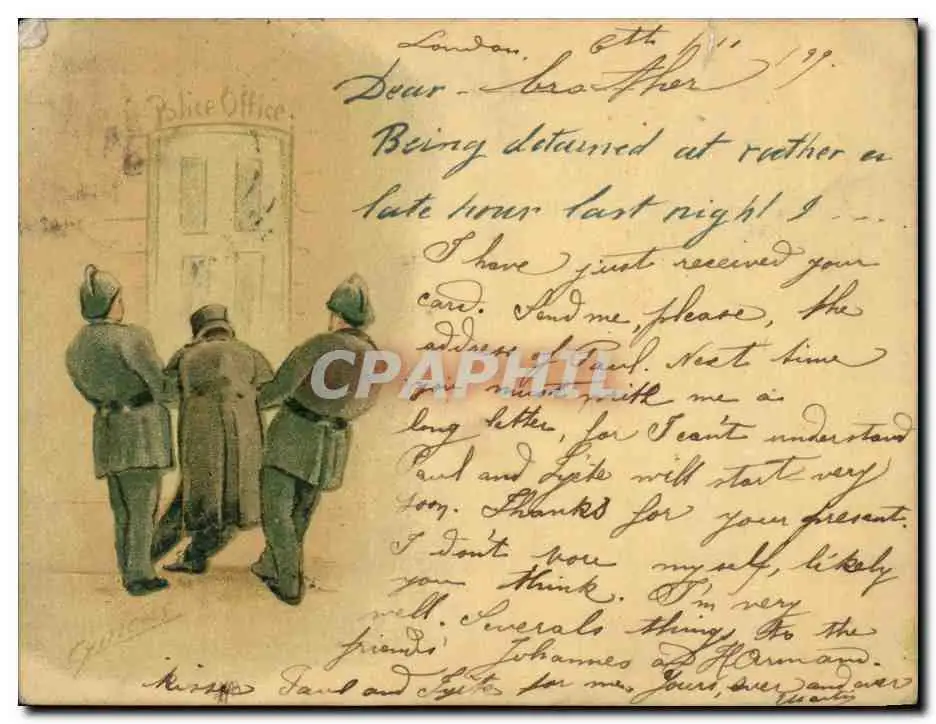 London, 6th 11 99.
Dear brother
Police Office.
Being detained at rather a
late hour last night I ...
I have just received your
card. Send me, please, the
address of Paul. Next time
you must writk me a
long letter, for I can't understand
Paul and will start very
soon. Thanks for your present.
I don't bore myself, likely
you think. I'm very
well. Severals things to the
friends' Johannes and Hermand.
kiss Paul and for me. Yours, ever and ever
CPAPHIL